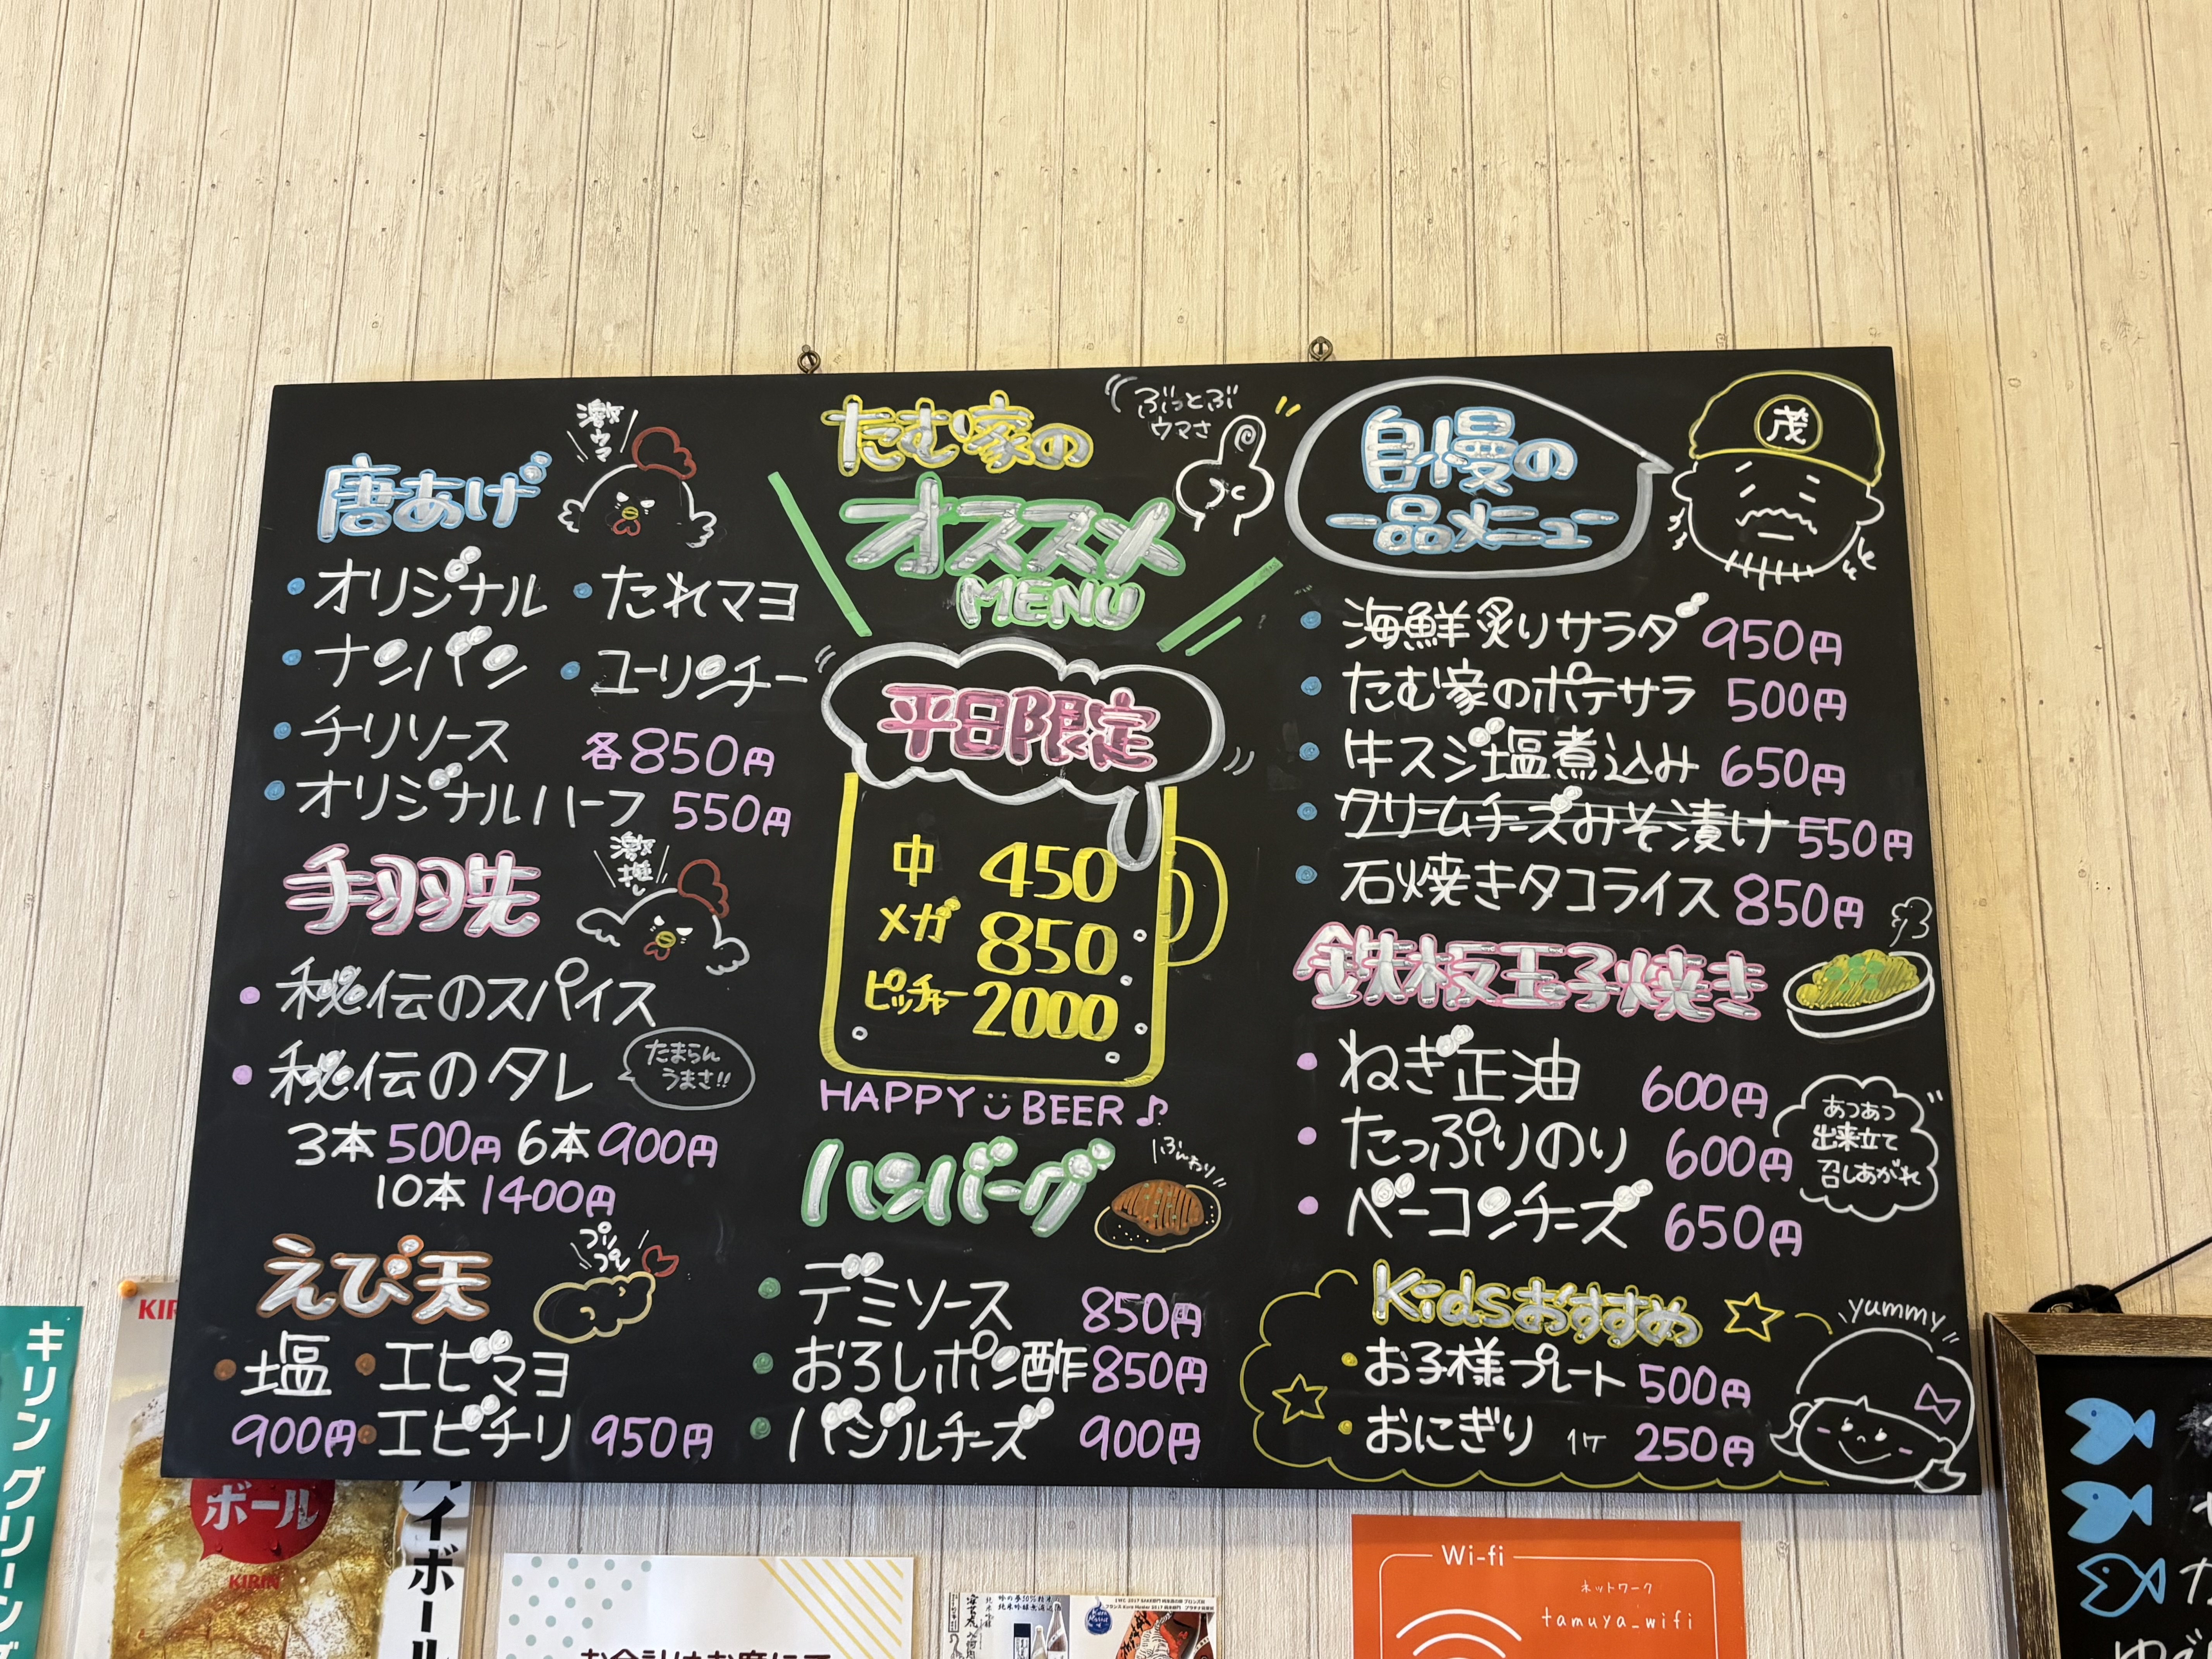 たむ家の
オススメ
MENU
ぶっとぶ
ウマさ
唐あげ
激ウマ
オリジナル
たれマヨ
ナンバン
ユーリンチー
チリソース
各850円
オリジナルハーフ 550円
手羽先
激推し
秘伝のスパイス
秘伝のタレ
たまらん
うまさ!!
3本 500円 6本 900円
10本 1400円
えび天
プリ
プリ
塩
エビマヨ
900円
エビチリ 950円
平日限定
中 450
メガ 850
ピッチャー 2000
HAPPY BEER♪
ハンバーグ
ふんわり
デミソース 850円
おろしポン酢 850円
バジルチーズ 900円
自慢の
一品メニュー
茂
海鮮炙りサラダ 950円
たむ家のポテサラ 500円
牛スジ塩煮込み 650円
クリームチーズみそ漬け 550円
石焼きタコライス 850円
鉄板玉子焼き
ねぎ正油 600円
たっぷりのり 600円
ベーコンチーズ 650円
あつあつ
出来立て
召しあがれ
Kidsおすすめ
yummy
お子様プレート 500円
おにぎり 1ケ 250円
キリングリーンズ
KIR
ボール
KIRIN
ハイボール
お会計はお席にて
Wi-fi
ネットワーク
tamuya_wifi